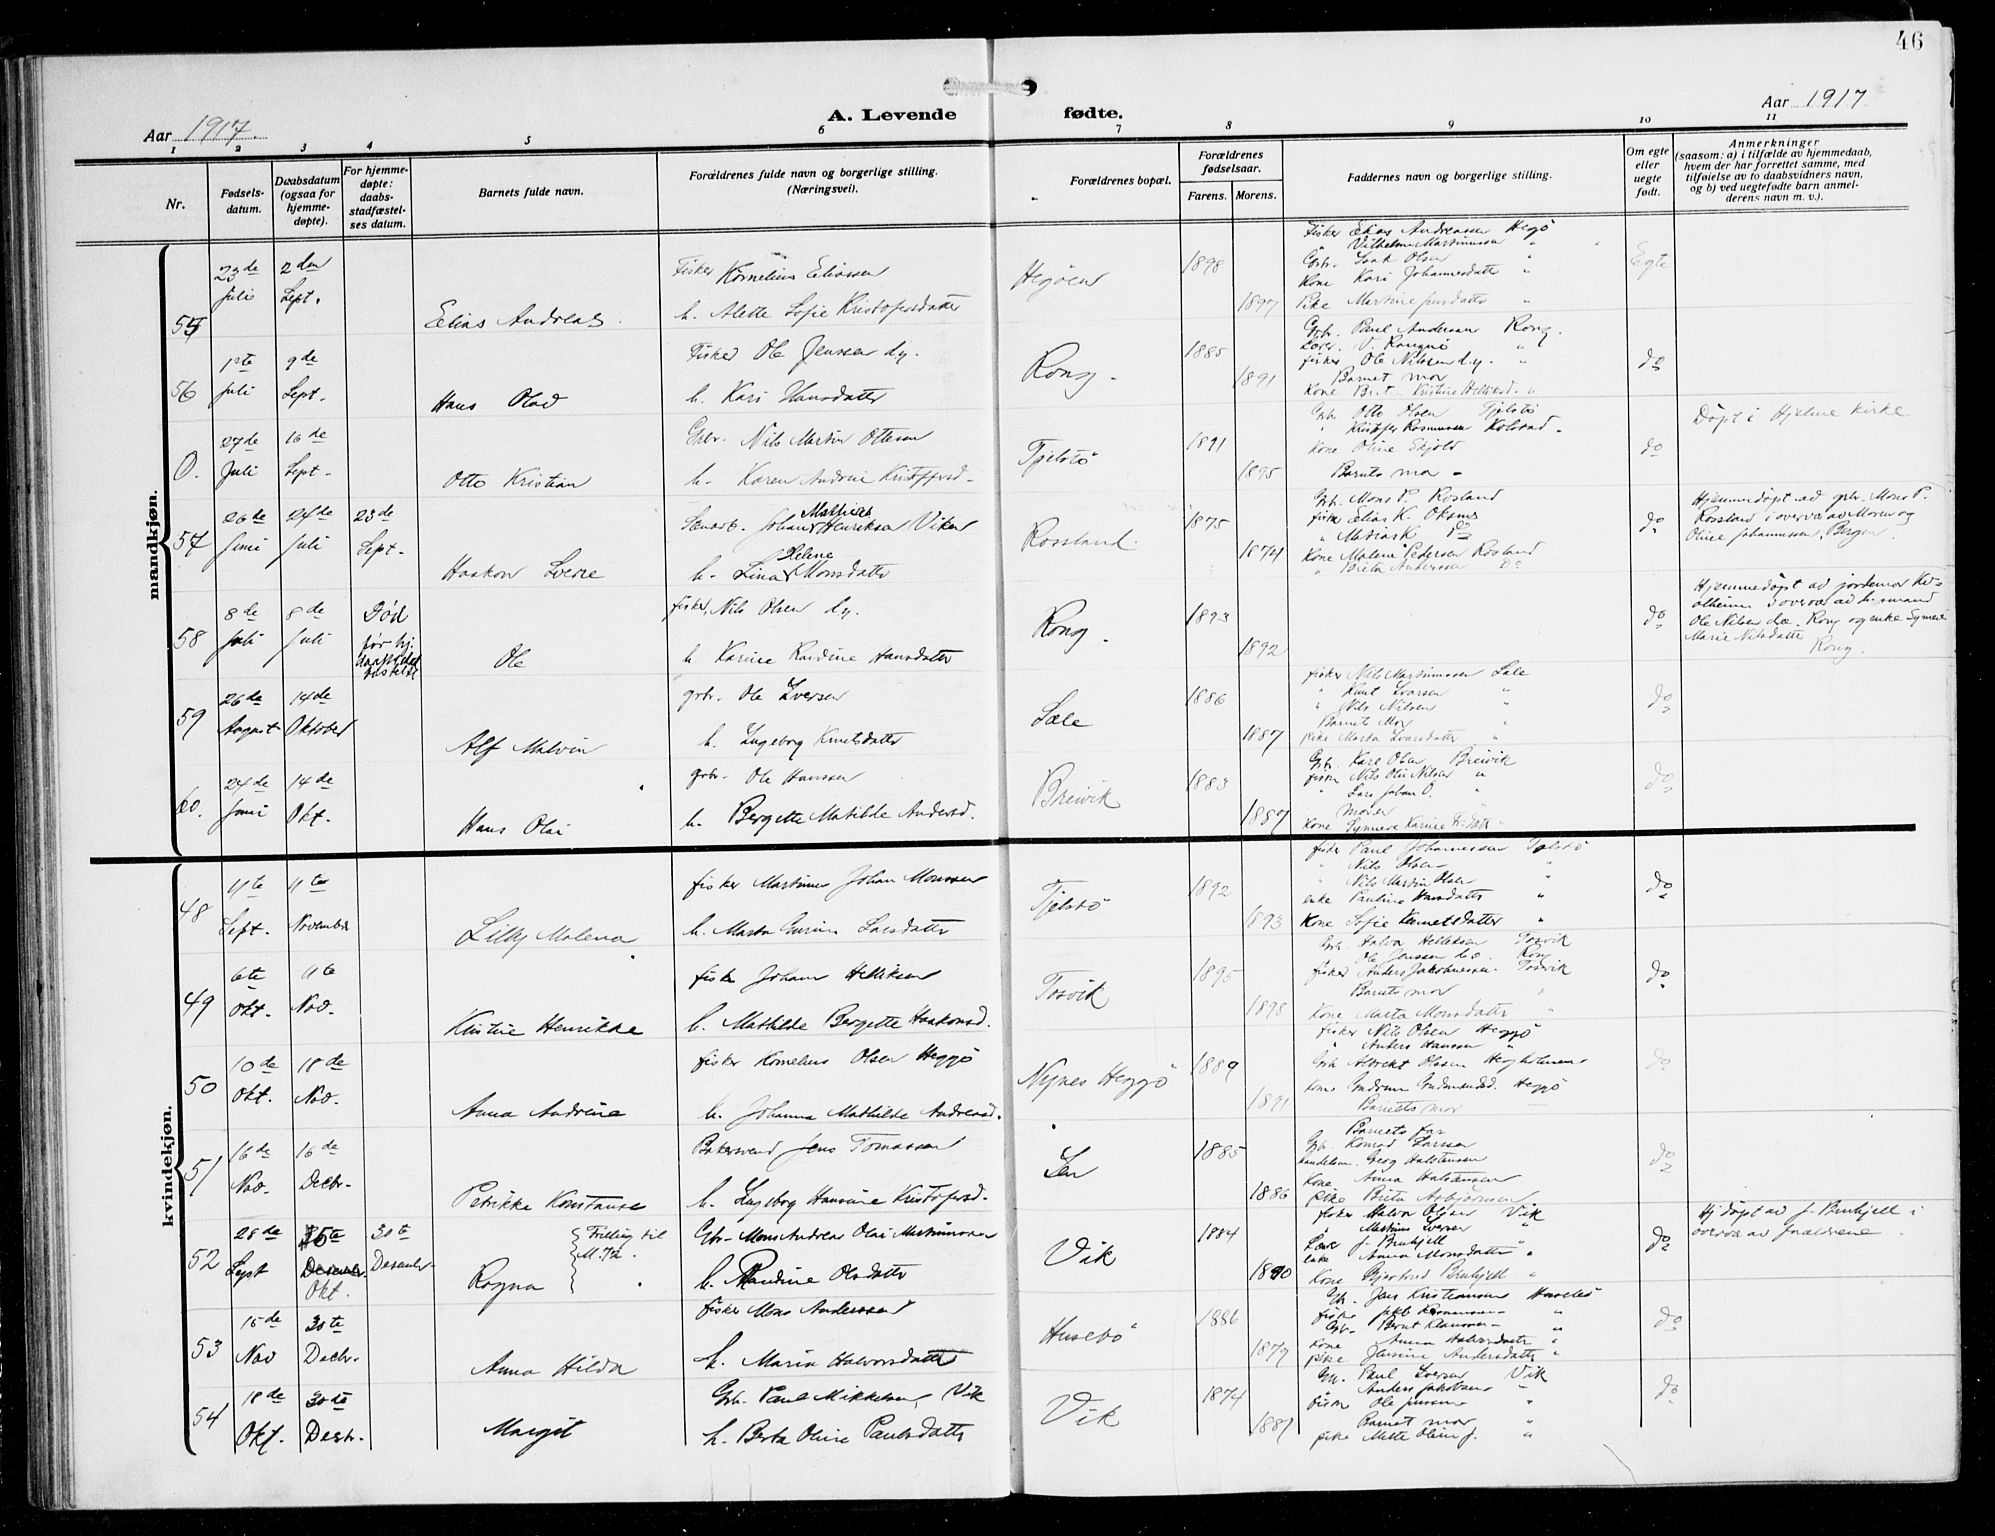 46
Aar 1917.
A. Levende
fødte.
Aar 1917
1 2 3 4 5 6 7 8 9 10 11
Nr.
Fødsels-
datum.
Daabsdatum
(ogsaa for
hjemme-
døpte).
For hjemme-
døpte:
daabs-
stadfæstel-
ses datum.
Barnets fulde navn.
Forældrenes fulde navn og borgerlige stilling.
(Næringsvei).
Forældrenes bopæl.
Forældrenes
fødselsaar.
Farens. Morens.
Faddernes navn og borgerlige stilling.
Om egte
eller
uegte
født.
Anmerkninger
(saasom: a) i tilfælde av hjemmedaab,
hvem der har forrettet samme, med
tilføielse av to daabsvidners navn,
og b) ved uegtefødte barn anmel-
derens navn m. v.).
mandkjøn.
55
23de
Juli
2den
Sept.
Elias Andreas
Fisker Kornelius Eliassen
h. Alette Sofie Kristofersdatter
Hegöen
1898
1897
Fisker Elias Andreassen Hegö
" Vilhelm Martinussen "
Gbr. Isak Olsen "
Kone Kari Johannesdatter "
Pike Martine "
Egte
56
1ste
Juli
9de
Sept.
Hans Olav
Fisker Ole Jenssen d.y.
h. Kari Hansdatter
Rong.
1885
1891
Gbr. Paul Andersen Rong.
Lærer V. "
fisker Ole Nilssen d.y. "
Barnet mor
Kone Kristine "
do
0.
27de
Juli
16de
Sept.
Otto Kristian
Gbr. Nils Martin Ottesen
h. Karen Andrine
Tjelstö
1891
1895
Gbr. Otto Olsen Tjelstö
" Rasmussen
Kone Oline Skjold
Barnets mor
do
Døpt i Hjelme kirke
57
26de
Juni
24de
Juli
23de
Sept.
Haakon Sverre
Johan Mathias Henriksen Viken
h. Lina Helene Monsdatter
Rossland.
1875
1874
Gbr. Mons P. Rosland
fisker Elias K. Oksnes
" do
Kone Malene Pedersen Rosland
" Andersen do
do
Hjemmedøpt ad gbr. Mons P.
Rossland i overvær av Moren og
Oline Johannessen, Bergen.
58
8de
Juli
8de
Juli
Død
før hj.
Ole
fisker, Nils Olsen d.y.
h. Karine Hansdatter
Rong.
1893
1892
do
Hjemmedøpt ad jordemor
i overvær ad
Ole Nilsen d.æ. Rong og enke
Marie Nilsdatter
Rong.
59
26de
August
14de
Oktober
Alf Malvin
gbr. Ole Iversen
h. Ingeborg Knutsdatter
Sæle
1886
1887
fisker Nils Martinussen Sæle
" Knut Ivarsen "
" Nils Nilsen "
Barnet Mor
pike Marta Ivarsdatter "
do
60.
24de
Juni
14de
Okt.
Hans Olai
gbr. Ole Hanssen
h. Bergitte Matilde Andersd.
Breivik
1883
1887
Gbr. Karl Olsen Breivik
fisker Nils Nilsen "
" Lars Johan O. "
moren
Kone Synneve Karine
do
kvindekjøn.
48
11te
Sept.
11te
November
Lilly Malena
fisker Martinus Johan Monssen
h. Marta Larsdatter
Tjelstö
1892
1893
fisker Paul Johannessen Tjelstö
" Nils Olsen "
" Nils Martin Olsen "
enke Pauline Hansdatter "
Kone Sofie Knutsdatter "
do
49
6te
Okt.
11te
Nov.
Kristine Henrikke
fisker Johan Helliksen
h. Mathilde Bergette Haakonsd.
Torsvik
1895
1898
Gbr. Halvor Helliksen Torsvik
Ole Jenssen d.æ. Rong
fisker Anders Jakobnessen Torsvik
Barnets mor "
Kone Marta Monsdatter "
do
50
10de
Okt.
18de
Nov.
Anna Andrine
fisker Kornelius Olsen Heggö
h. Johanna Mathilde Andreasd.
Nynes Heggö
1889
1891
fisker Nils Olsen Heggö
" Anders Hanssen "
Gbr. Albrekt Olsen
Kone Gudrun Gudmundsd. Heggö
Barnets mor
do
51
16de
Nov.
16de
Decbr.
Petrikke Konstanse
Bakersvend Jens Tomassen
h. Ingeborg Hansine Kristofersd.
1885
1886
Barnets far
Gbr. Konrad Larsen
Handelsm. Georg Halstensen
Kone Anna Halstensen
pike Brita Asbjørnsen
do
52
28de
Sept
15te
Desember
Okt.
30te
Desember
Ragna
Tvilling til
M. 72
Gbr. Mons Andreas Olai Martinussen
h. Randine Olsdatter
Vik
1884
1890
fisker Halvor Olsen Vik
" Martinus Iversen "
Lærer J. Bruhjell
enke Anna Monsdatter "
Kone Gjertrud Brukjell "
do
Hj. døpt av J. Bruhjell i
overvær av forældrene
53
15de
Nov
30te
Decbr.
Anna Hilda
fisker Mons Anderssen
h. Maria Halvorsdatter
Husebö
1886
1879
Gbr. Jens Kristiansen Husebö
fisker Rasmussen "
Gbr. Bernt "
Kone Anna Halvorsdatter "
pike Jensine Andersdatter "
do
54
18de
Okt.
30te
Desbr.
Margit
Gbr. Paul Mikkelsen, Vik
h. Berta Oline Paulsdatter
Vik
1874
1887
Gbr. Paul Iversen Vik
Anders Jakobsen "
fisker Ole Jenssen "
Barnet mor "
pike Mette Olina J. "
do